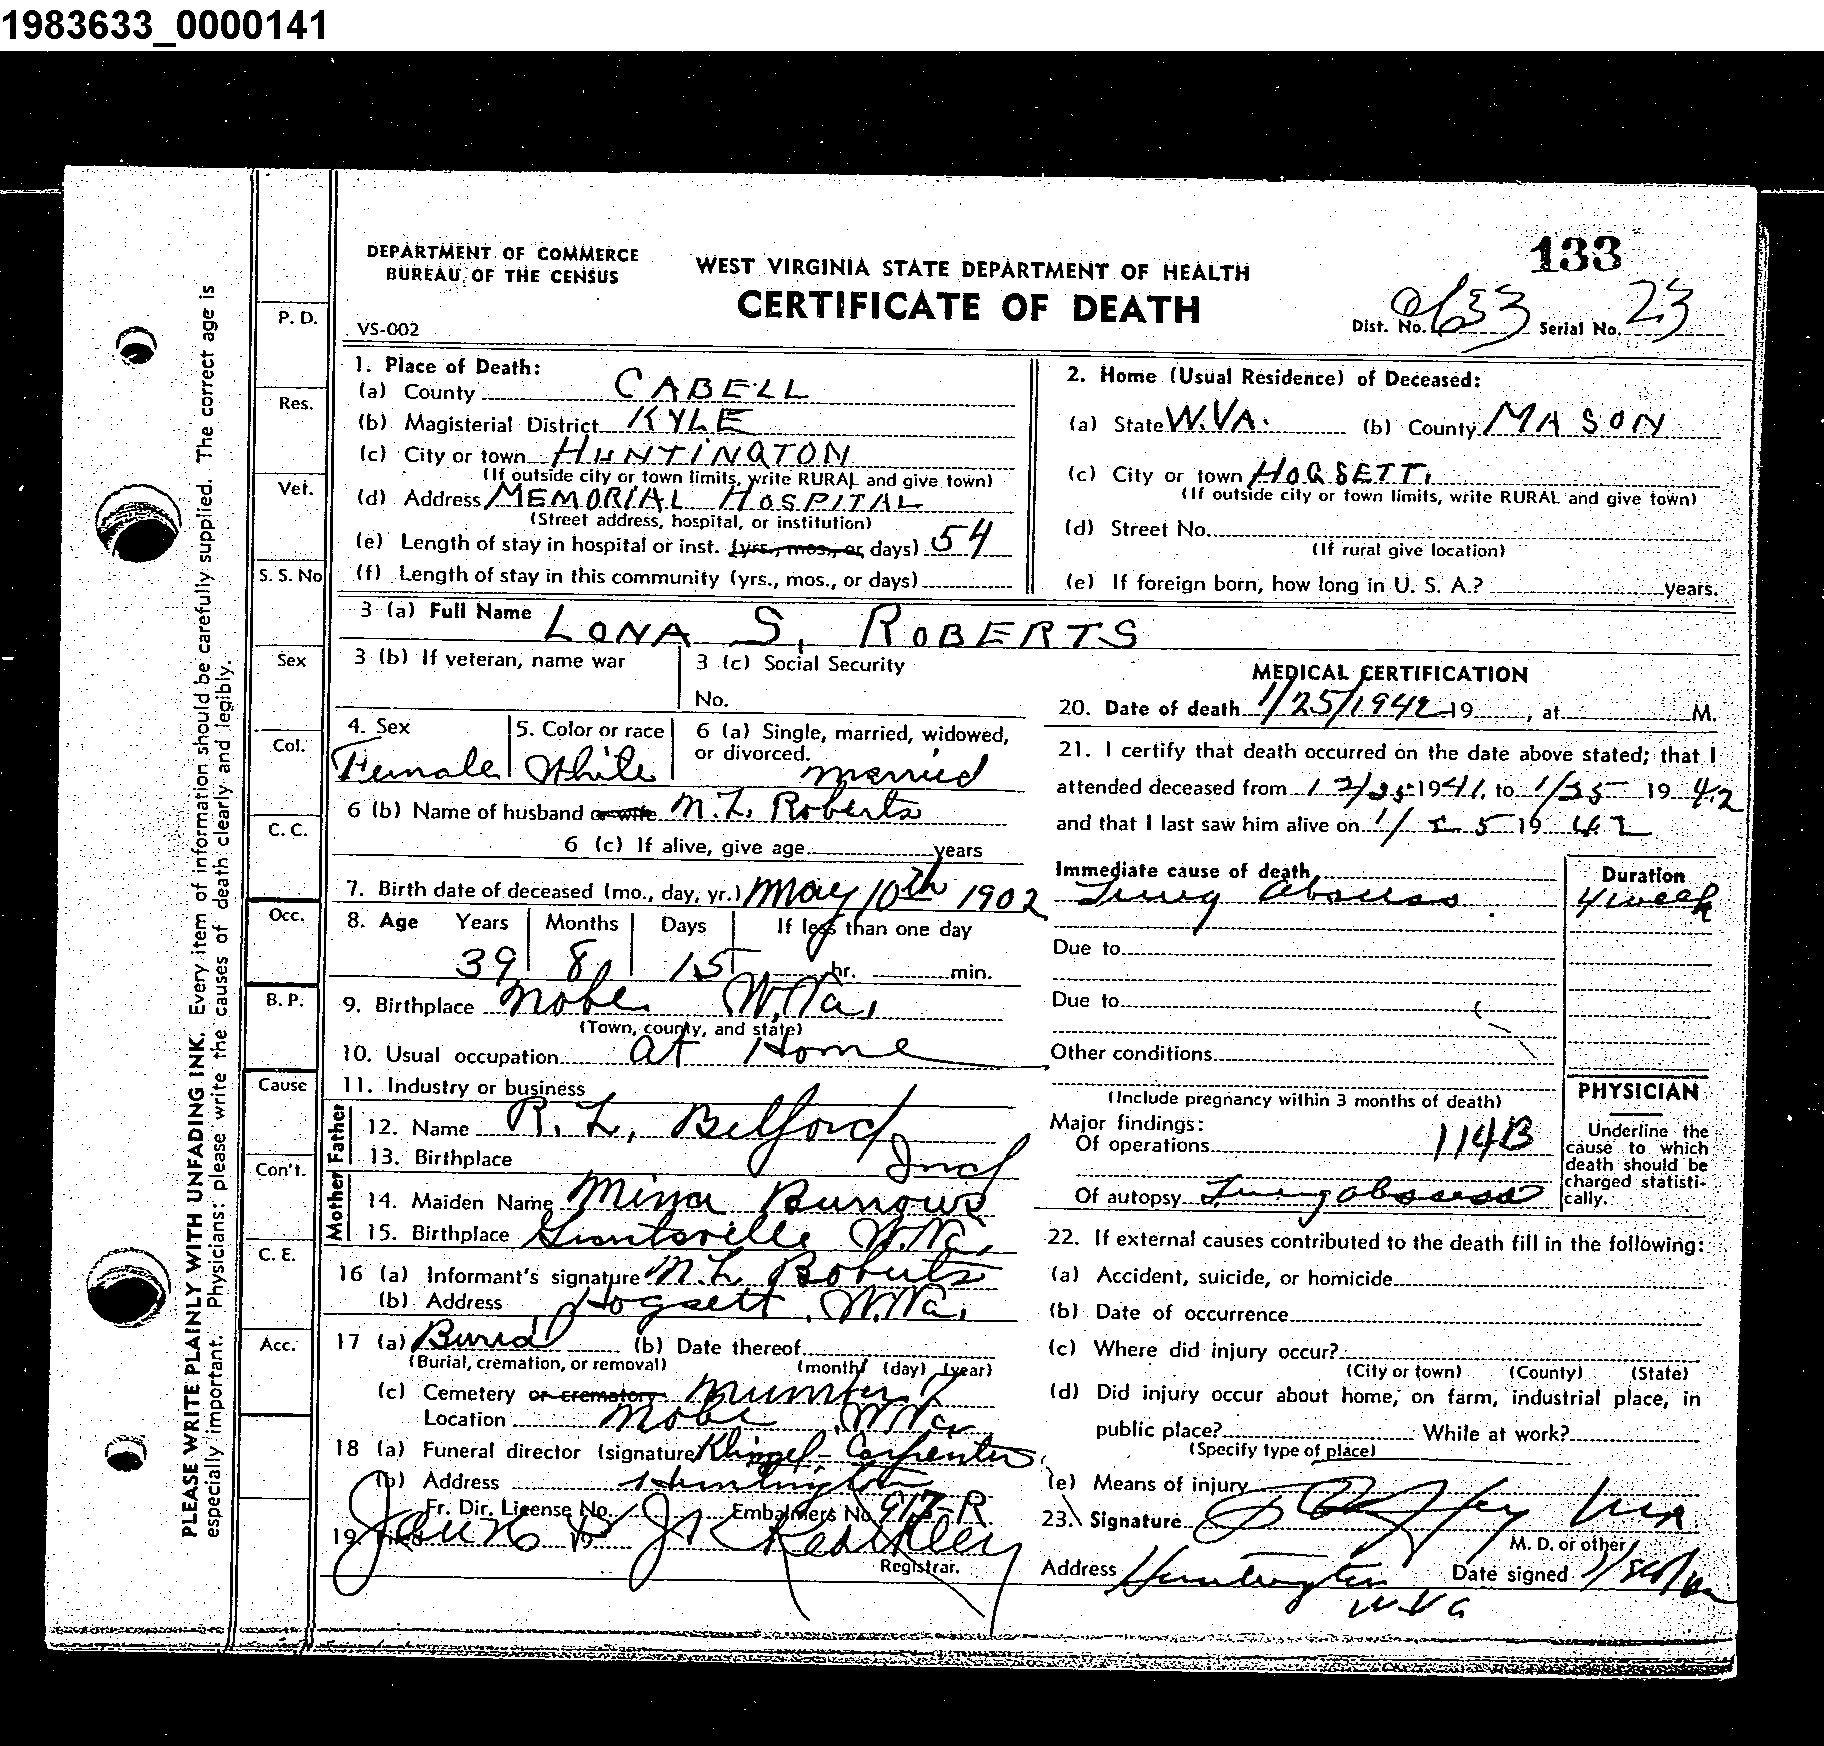 1983633_0000141
133
DEPARTMENT OF COMMERCE
BUREAU OF THE CENSUS
WEST VIRGINIA STATE DEPARTMENT OF HEALTH
CERTIFICATE OF DEATH
VS-002
Dist. No. Serial No. 23
PLEASE WRITE PLAINLY WITH UNFADING INK. Every item of information should be carefully supplied. The correct age is
especially important. Physicians: please write the causes of death clearly and legibly.
P. D.
Res.
Vet.
S. S. No
Sex
Col.
C. C.
Occ.
B. P.
Cause
Con't.
C. E.
Acc.
1. Place of Death:
(a) County CABELL
(b) Magisterial District KYLE
(c) City or town HUNTINGTON
(If outside city or town limits, write RURAL and give town)
(d) Address MEMORIAL HOSPITAL
(Street address, hospital, or institution)
(e) Length of stay in hospital or inst. (yrs., mos., or days) 54
(f) Length of stay in this community (yrs., mos., or days)
2. Home (Usual Residence) of Deceased:
(a) State W.VA. (b) County MASON
(c) City or town HOGSETT,
(If outside city or town limits, write RURAL and give town)
(d) Street No.
(If rural give location)
(e) If foreign born, how long in U. S. A.? years.
3 (a) Full Name LONA S. ROBERTS
3 (b) If veteran, name war
3 (c) Social Security
No.
4. Sex
Female
5. Color or race
White
6 (a) Single, married, widowed,
or divorced.
married
6 (b) Name of husband or wife M.L. Roberts
6 (c) If alive, give age years
7. Birth date of deceased (mo., day, yr.) May 10th 1902
8. Age Years Months Days If less than one day
39 8 15 hr. min.
9. Birthplace Nobe W.Va.
(Town, county, and state)
10. Usual occupation at Home
11. Industry or business
Father
12. Name R. L. Belford
13. Birthplace Ind
Mother
14. Maiden Name Minor Burrows
15. Birthplace W.Va.
16 (a) Informant's signature M.L Roberts
(b) Address Hogsett, W.Va.
17 (a) Burial (b) Date thereof
(Burial, cremation, or removal) (month) (day) (year)
(c) Cemetery or crematory
Location Nobe W.Va.
18 (a) Funeral director (signature Klingel-Carpenter
(b) Address Huntington
Fr. Dir. License No. Embalmers No. 917-R
19. Filed 19
Registrar.
MEDICAL CERTIFICATION
20. Date of death 1/25/1942 19 , at M.
21. I certify that death occurred on the date above stated; that I
attended deceased from 1941, to 1/25 19 42
and that I last saw him alive on 1/25 19 42
Immediate cause of death
Lung abscess
Duration
4 week
Due to
Due to
Other conditions
(Include pregnancy within 3 months of death)
Major findings:
Of operations 114B
Of autopsy Lung abscess
PHYSICIAN
Underline the
cause to which
death should be
charged statisti-
cally.
22. If external causes contributed to the death fill in the following:
(a) Accident, suicide, or homicide
(b) Date of occurrence
(c) Where did injury occur?
(City or town) (County) (State)
(d) Did injury occur about home, on farm, industrial place, in
public place? While at work?
(Specify type of place)
(e) Means of injury
23. Signature
M. D. or other
Address Huntington Date signed
W.Va